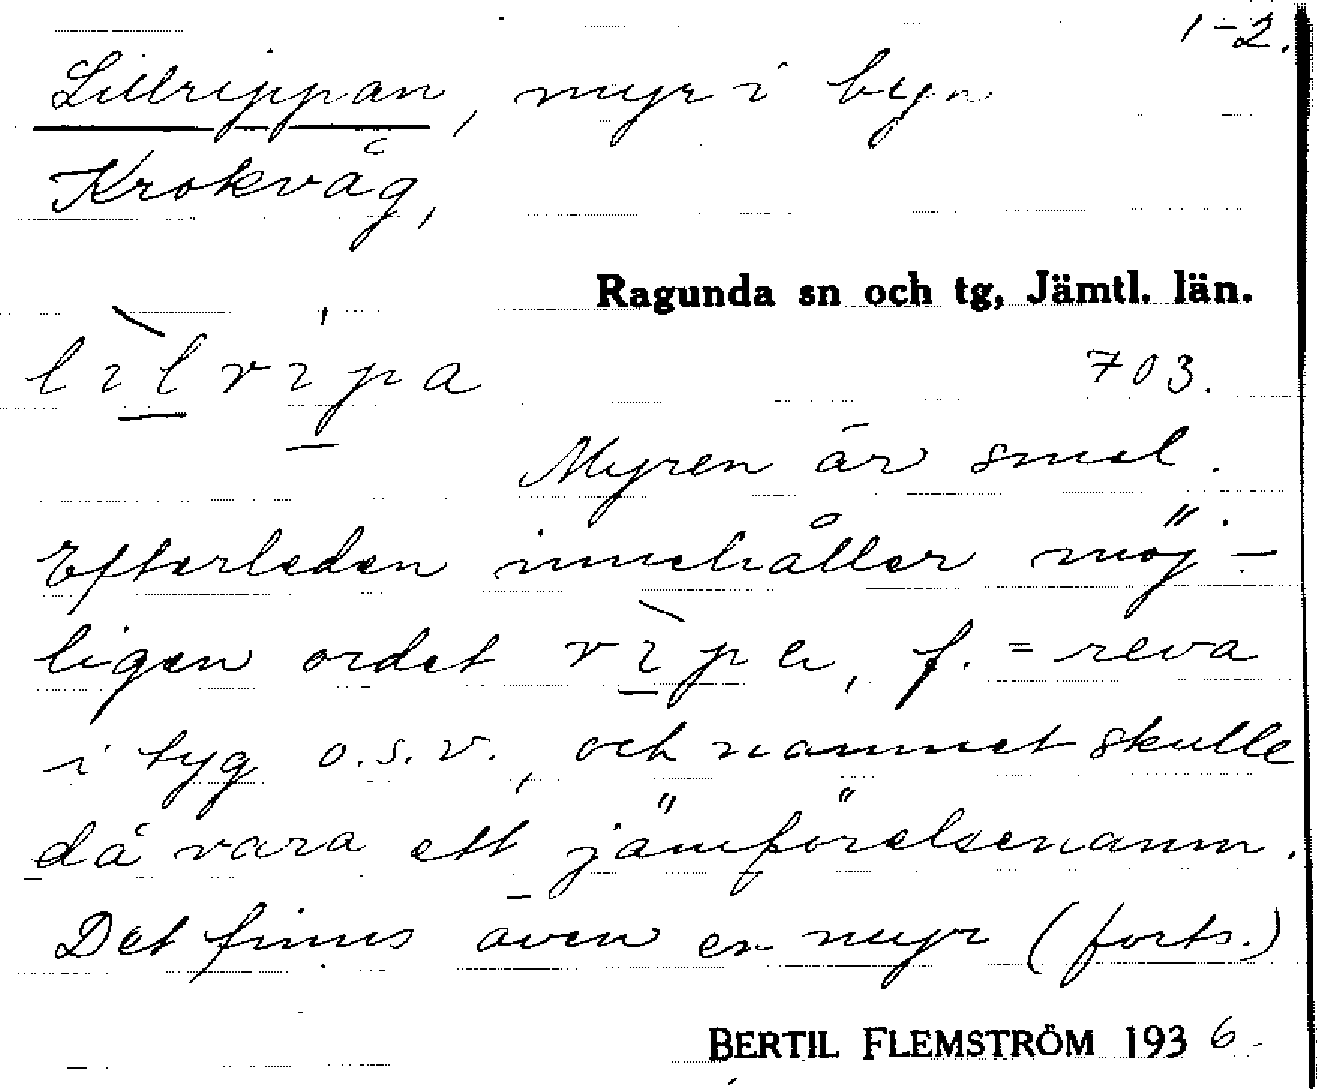 1-2.
Lillrippan, myr i byn
Krokvåg,
Ragunda sn och tg, Jämtl. län.
lìlrìpa
703.
Myren är smal.
Efterleden innehåller möj-
ligen ordet rìpa, f. = reva
i tyg o.s.v., och namnet skulle
då vara ett jämförelsenamn.
Det finns även en myr (forts.)
BERTIL FLEMSTRÖM 1936